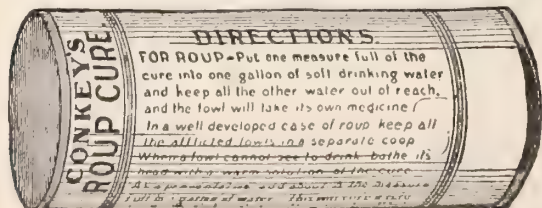 CONKEY'S
ROUP CURE
DIRECTIONS.
FOR ROUP-Put one measure full of the
cure into one gallon of soft drinking water
and keep all the other water out of reach,
and the fowl will take its own medicine
In a well developed case of roup keep all
the afflicted fowls in a separate coop
When a fowl cannot see to drink bathe its
head with a warm solution of the cure
As a preventative add about
full to gallons of water This